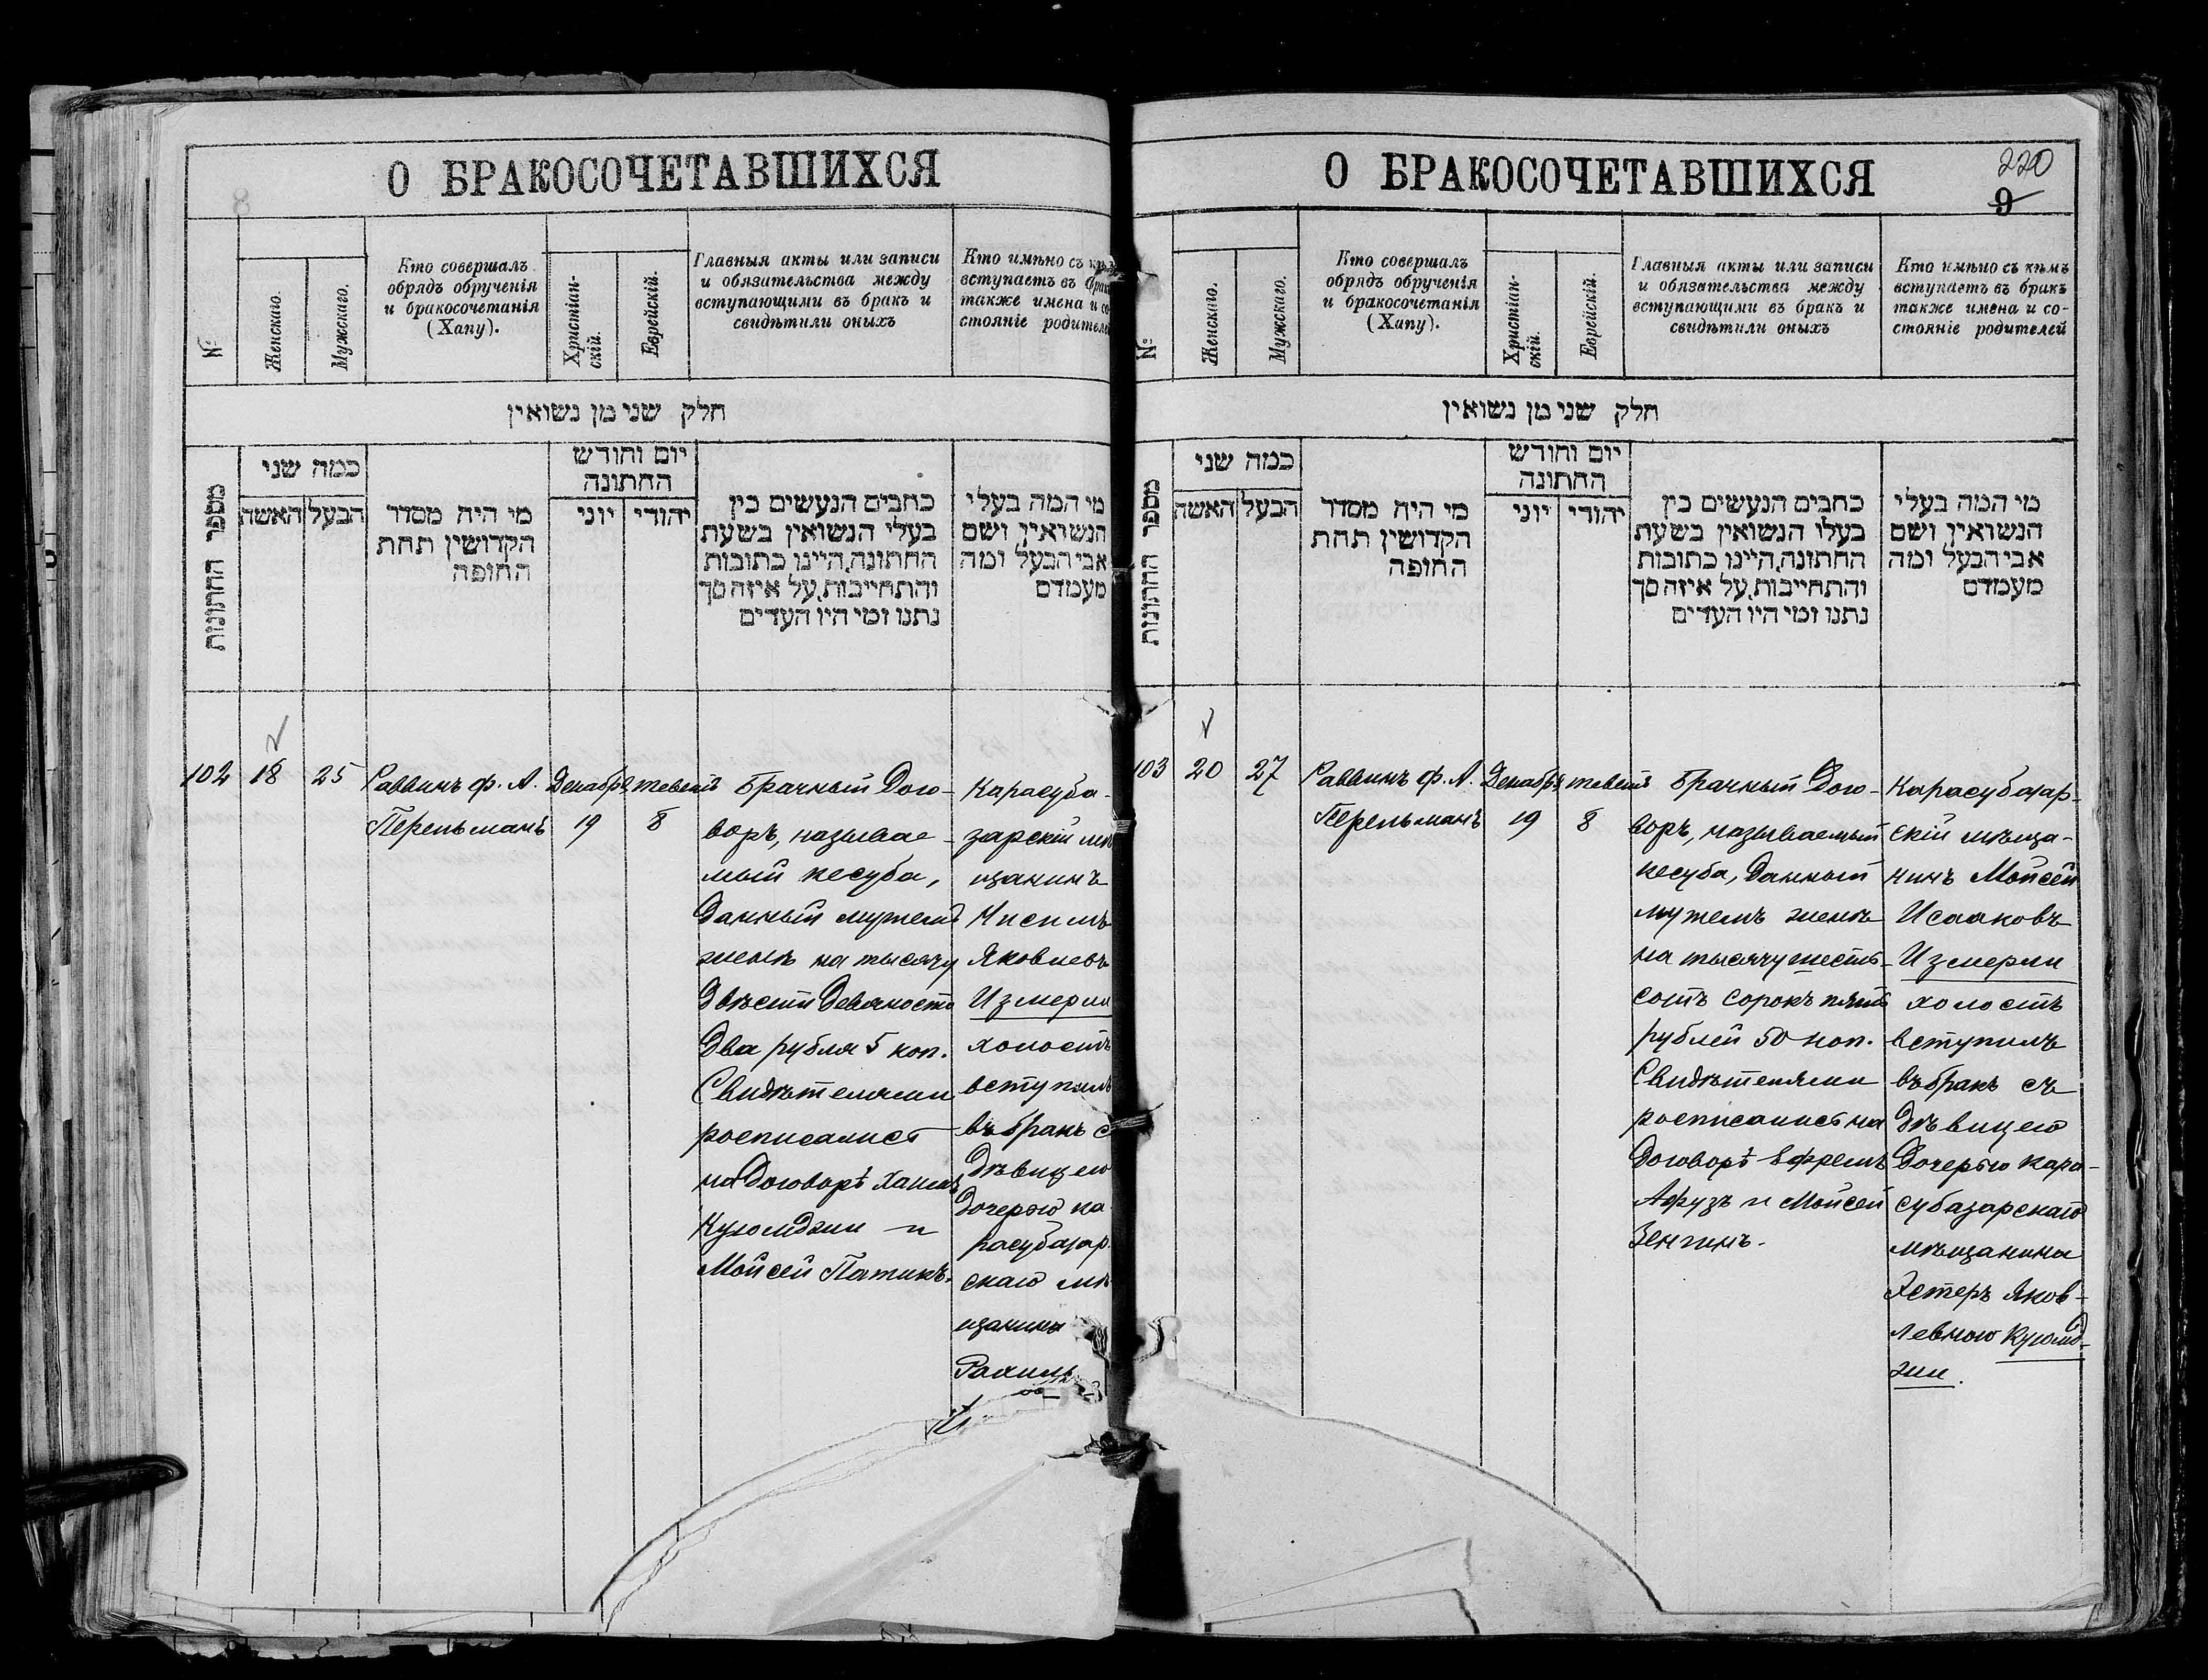 О БРАКОСОЧЕТАВШИХСЯ
8
№
Женскаго.
Мужскаго.
Кто совершалъ
обрядъ обрученія
и бракосочетанія
(Хапу).
Христіан-
скій.
Еврейскій.
Главныя акты или записи
и обязательства между
вступающими въ бракъ и
свидѣтили оныхъ
Кто имѣно съ
вступаетъ въ
также имена и со
стояніе родителей
חלק שני מן נשואין
מספר החתונות
כמה שני
האשה
הבעל
מי היה מסדר
הקדושין תחת
החופה
יום וחודש
החתונה
יוני
יהודי
כתבים הנעשים בין
בעלי הנשואין בשעת
החתונה, היינו כתובות
והתחייבות, על איזה סך
נתנו ומי היו העדים
מי המה בעלי
הנשואין ושם
אבי הבעל ומה
מעמדם
102
18
25
Раввинъ Ф. А.
Перельманъ
Декабря
19
теветъ
8
Брачный Дого-
воръ, называе-
мый кесуба,
данный мужемъ
женѣ на тысячу
двѣсти девяносто
два рубля 5 коп.
Свидѣтелями
росписались
на договорѣ Хаимъ
Куюмджи и
Мойсей Патикъ.
Карасуба-
зарскій мѣ
щанинъ
Нисимъ
Яковлевъ
Измерли
холостъ
вступилъ
въ бракъ с
дѣвицею
дочерью ка
расубазар-
скаго мѣ
щанина
Рахиль
О БРАКОСОЧЕТАВШИХСЯ
220
9
№
Женскаго.
Мужскаго.
Кто совершалъ
обрядъ обрученія
и бракосочетанія
(Хапу).
Христіан-
скій.
Еврейскій.
Главныя акты или записи
и обязательства между
вступающими въ бракъ и
свидѣтили оныхъ
Кто имѣно съ кѣмъ
вступаетъ въ бракъ
также имена и со-
стояніе родителей
חלק שני מן נשואין
מספר החתונות
כמה שני
האשה
הבעל
מי היה מסדר
הקדושין תחת
החופה
יום וחודש
החתונה
יוני
יהודי
כתבים הנעשים בין
בעלו הנשואין בשעת
החתונה, היינו כתובות
והתחייבות, על איזה סך
נתנו ומי היו העדים
מי המה בעלי
הנשואין ושם
אבי הבעל ומה
מעמדם
103
20
27
Раввинъ Ф. А.
Перельманъ
Декабря
19
тевета
8
Брачный Дого-
воръ, называемый
кесуба, данный
мужемъ женѣ
на тысячу шесть-
сотъ сорокъ пять
рублей 50 коп.
Свидѣтелями
росписались на
договорѣ Эфремъ
Афузъ и Мойсей
Зенгинъ.
Карасубазар-
скій мѣща-
нинъ Мойсей
Исааковъ
Измерли
холостъ
вступилъ
въ бракъ съ
дѣвицею
дочерью Кара-
субазарскаго
мѣщанина
Эстеръ Яков-
левною Куюмд-
жи.